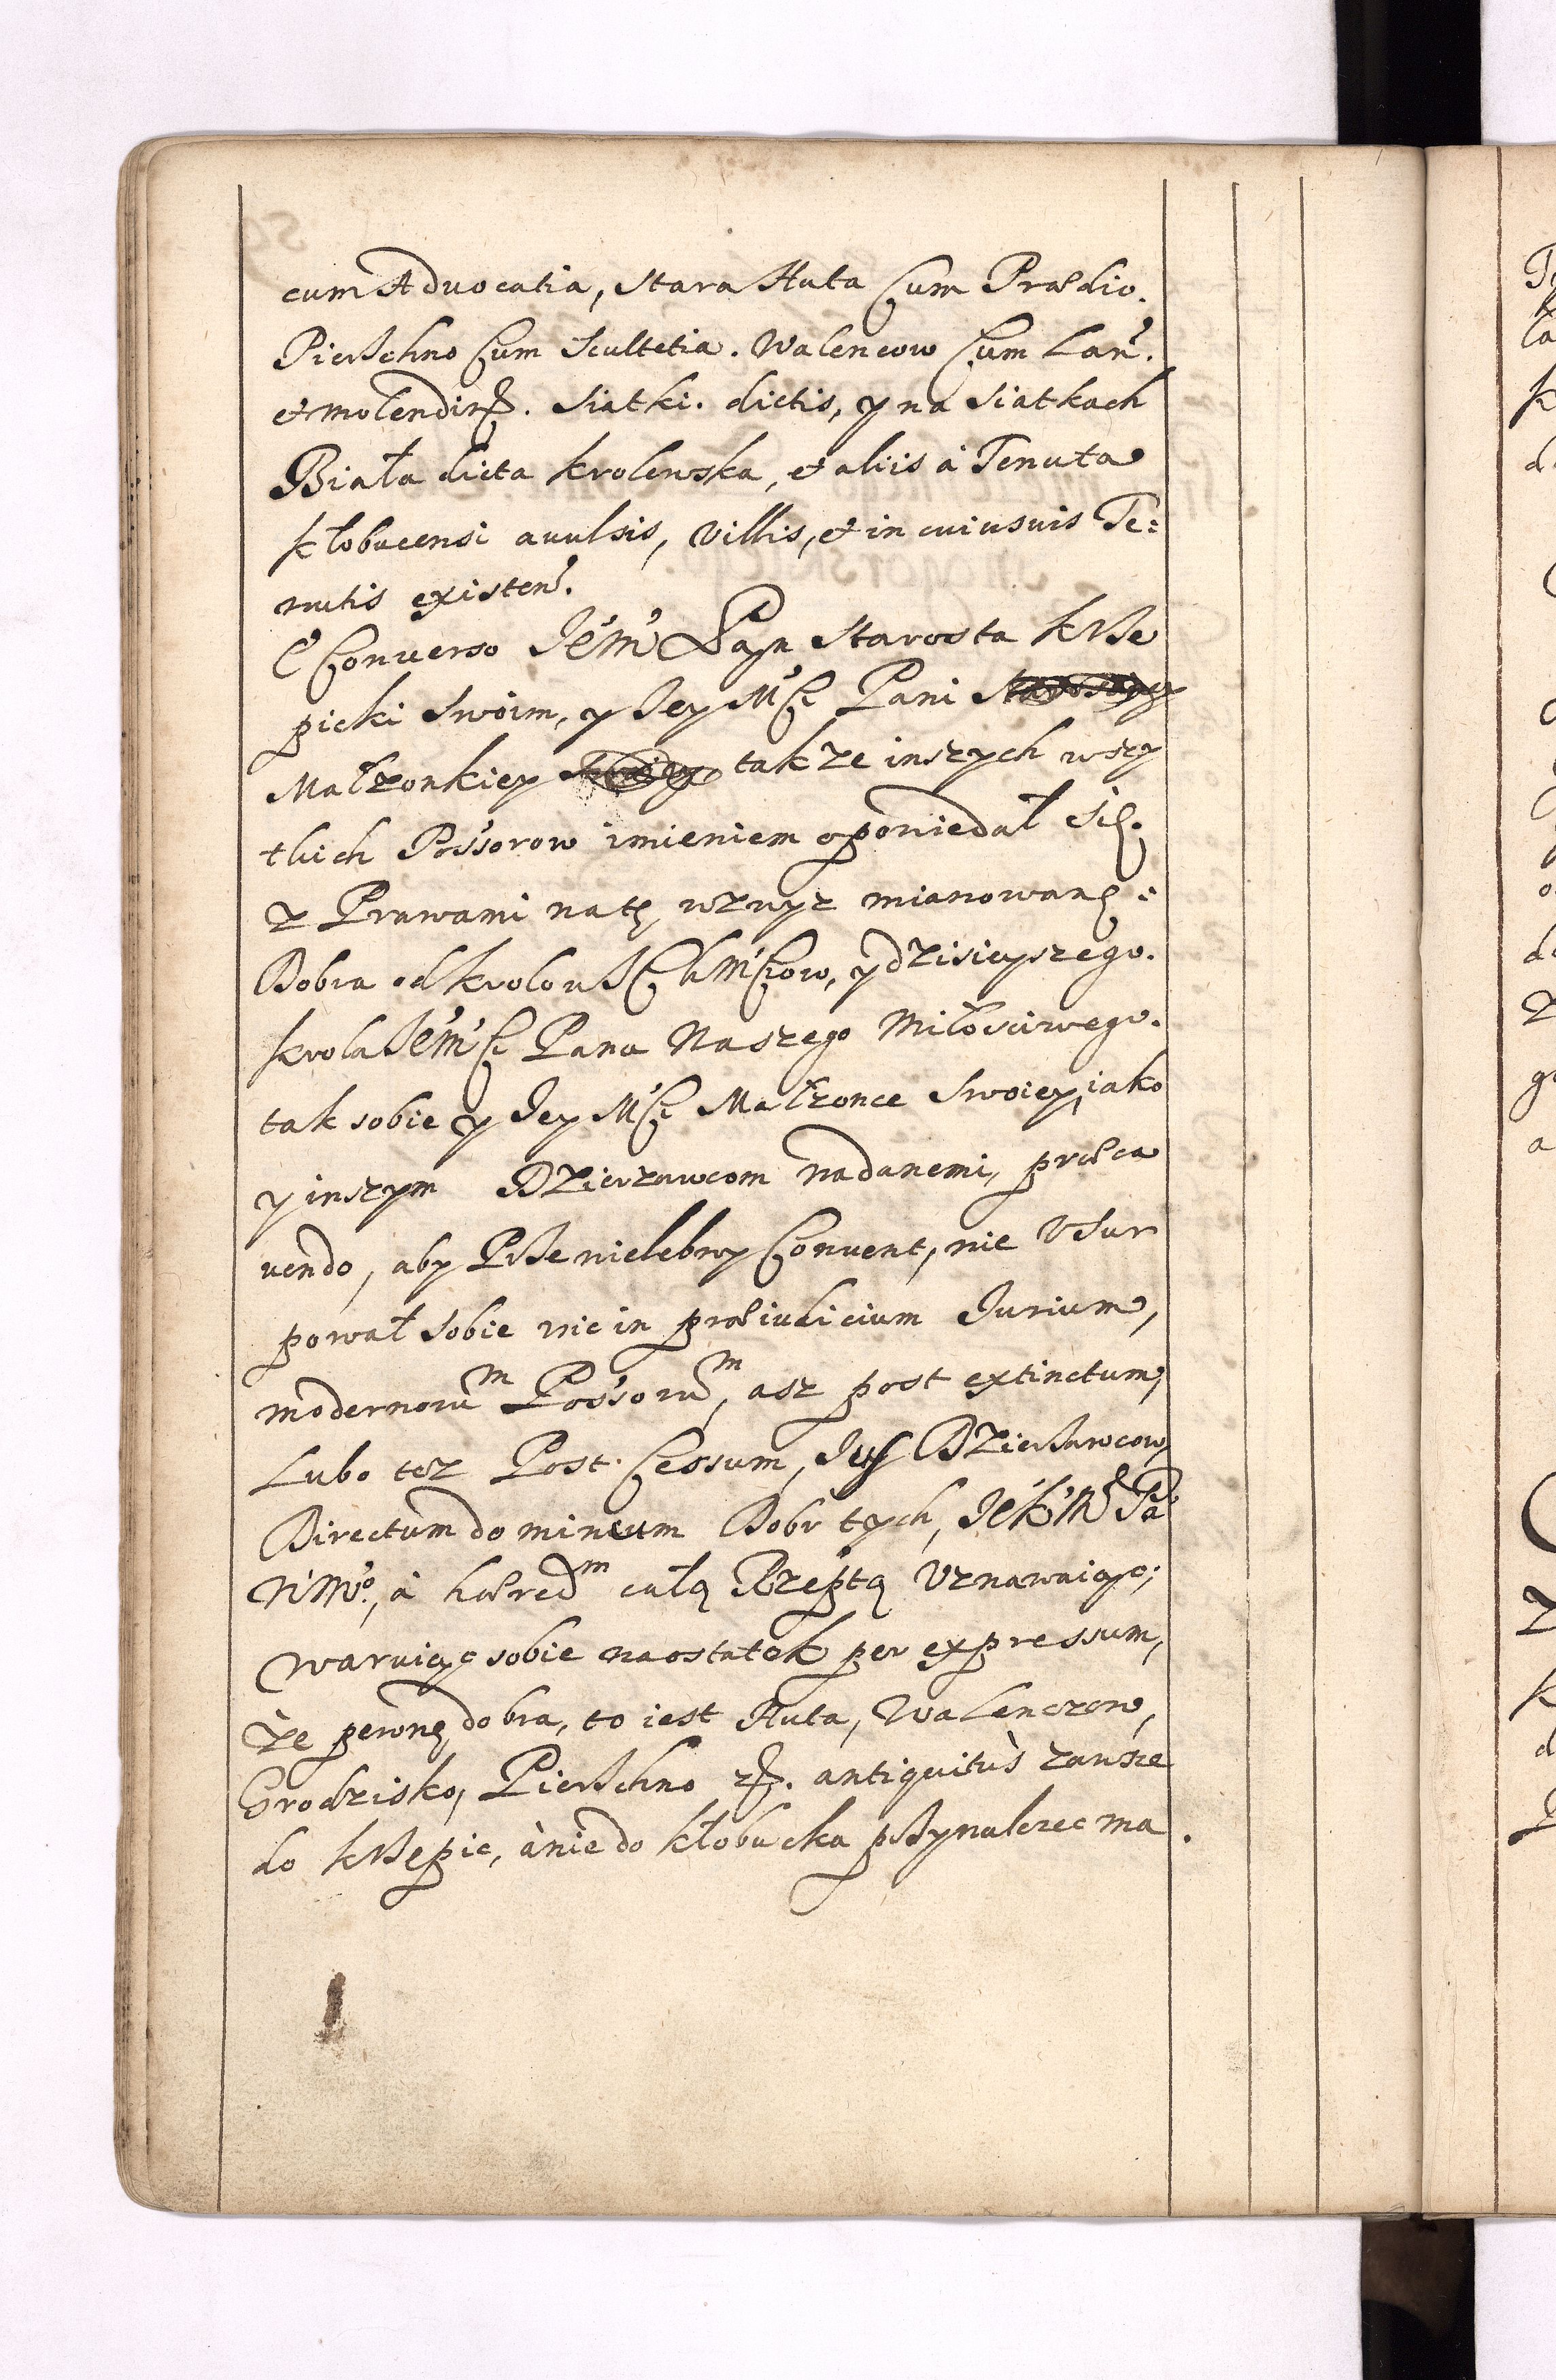 cum Advocatia, Stara Huta Cum Prædio.
Pierschno Cum Scultetia. Walencow Cum Lan.
et molendin. Siatki. dictis, y na Siatkach
Biała dicta krolewska, et aliis à Tenuta
kłobucensi auulsis, Villis, et in cuiusuis Te:
nutis existen.
E Conuerso JEM Pan Starosta krze
picki Swoim, y Jey Mci Pani
Małzonkiey takze inszych wszy
tkich Possorow imieniem opowiedał się.
z Prawami na te wzwyz mianowane:
Dobra od krolow Ich Mciow, y dzisieyszego.
krola JEMci Pana Naszego Miłosciwego.
tak sobie y Jey Mci Małzonce Swoiey, iako
y inszym Dzierzawcom nadanemi, præca
uendo, aby Przewielebny Conuent, nie Vsur
pował sobie nic in præiudicium Jurium,
modernoru^m Possoru^m, asz post extinctum,
Lubo tez Post. Cessum, Jus Dzierzawcow,
Directum dominium Dobr tych, JEKM Pa
NMo., à hæred^m całą Rzeptą Vznawaiąc;
waruiąc sobie naostatek per expressum,
ze pewne dobra, to iest Huta, Walenczow,
Grodzisko, Pierschno etc. antiquitùs zawsze
do krzepic, à nie do kłobucka przynalezec ma.